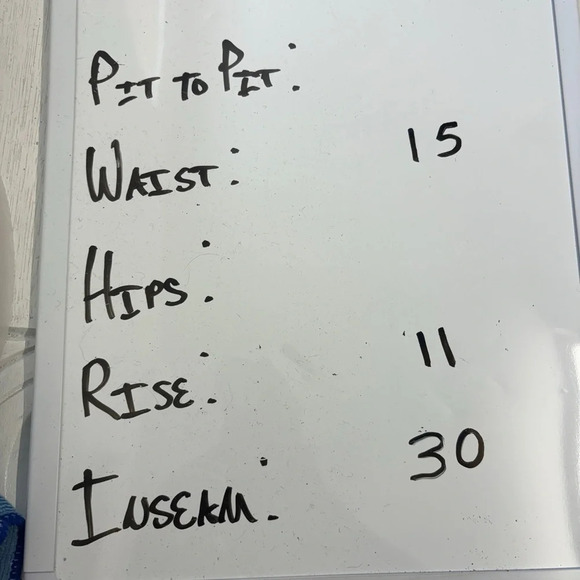 PIT TO PIT:
WAIST: 15
HIPS:
RISE: 11
INSEAM: 30